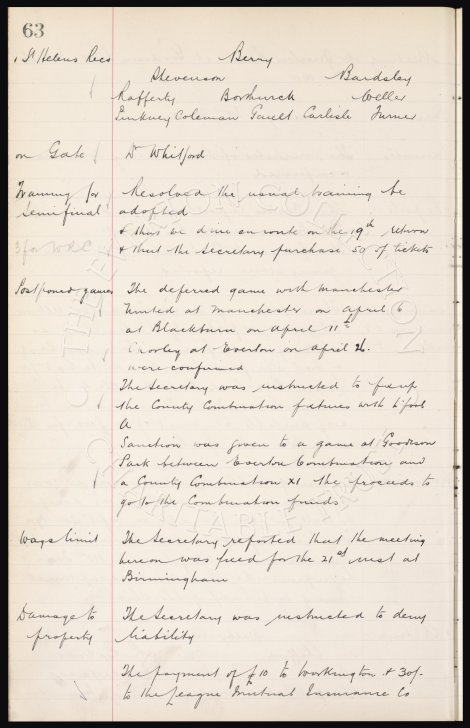 63
St Helens Recs
Berry
Stevenson Bardsley
Rafferty Borthwick Weller
Pinkney Coleman Jewett Carlisle Turner
on Gate Dr Whitford
Training for Resolved the usual training be
Semifinal adopted
& that we dine en route on the 19th return
3 for WRC & that the Secretary purchase 50 5/- tickets
Postponed games The deferred game with Manchester
United at Manchester on April 6
at Blackburn on April 11th
Crossley at Everton on April 26.
were confirmed
The Secretary was instructed to fix up
the County Combination fixtures with L'pool
A
Sanction was given to a game at Goodison
Park between Everton Combination, and
a County Combination XI the proceeds to
go to the Combination funds
Wages limit The Secretary reported that the meeting
hereon was fixed for the 21st inst at
Birmingham
Damage to The Secretary was instructed to deny
property liability
The payment of £10 to Workington & 30/-
to the League Mutual Insurance Co